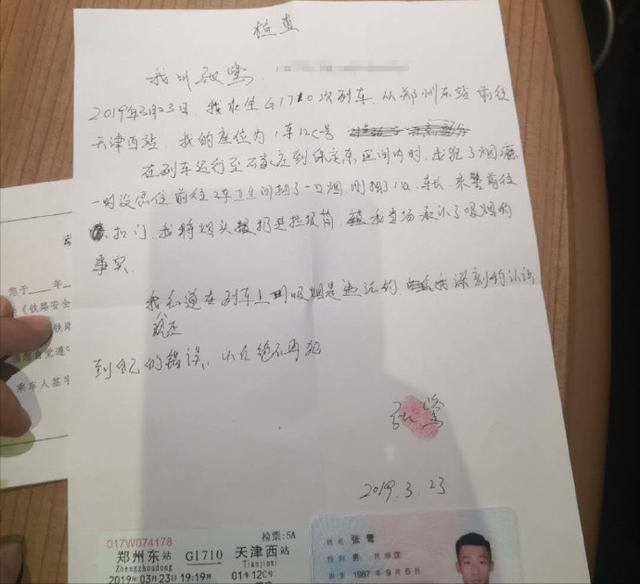 检查
我叫张莺
2019年3月23日,我在坐G1710次列车,从郑州东站前往
天津西站,我的座位为1车12C号
在列车运行至石家庄到保定东区间内时,我犯了烟瘾
一时没忍住前往2车卫生间抽了一口烟,刚抽了1口,车长、乘警前往
扣门,我将烟头扔进垃圾筒 我当场承认了吸烟的
事实
我知道在列车上吸烟是违法的, 深刻的认识
到自己的错误,以后绝不再犯
张莺
2019.3.23
您于 年
《铁路安全
乘车人签字
017W074178 检票:5A
郑州东站 G1710 天津西站
Zhengzhoudong Tianjinxi
2019年03月23日19:19开 01车12C号
姓名 张莺
性别 男 民族 汉
出生 1987年9月6日